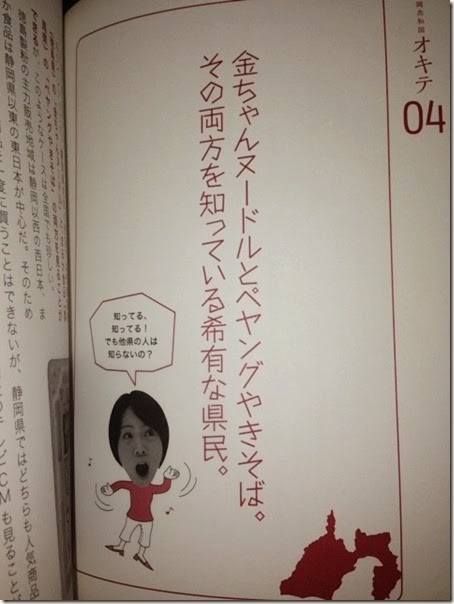 岡共和国
オキテ
04
金ちゃんヌードルとペヤングやきそば。
その両方を知っている希有な県民。
知ってる、
知ってる！
でも他県の人は
知らないの？
このようなケースは全国でも珍しい。
徳島製粉の主力販売地域は静岡以西の西日本、ま
か食品は静岡県以東の東日本が中心だ。そのため
度に買うことはできないが、静岡県ではどちらも人気商品
CMも見ること